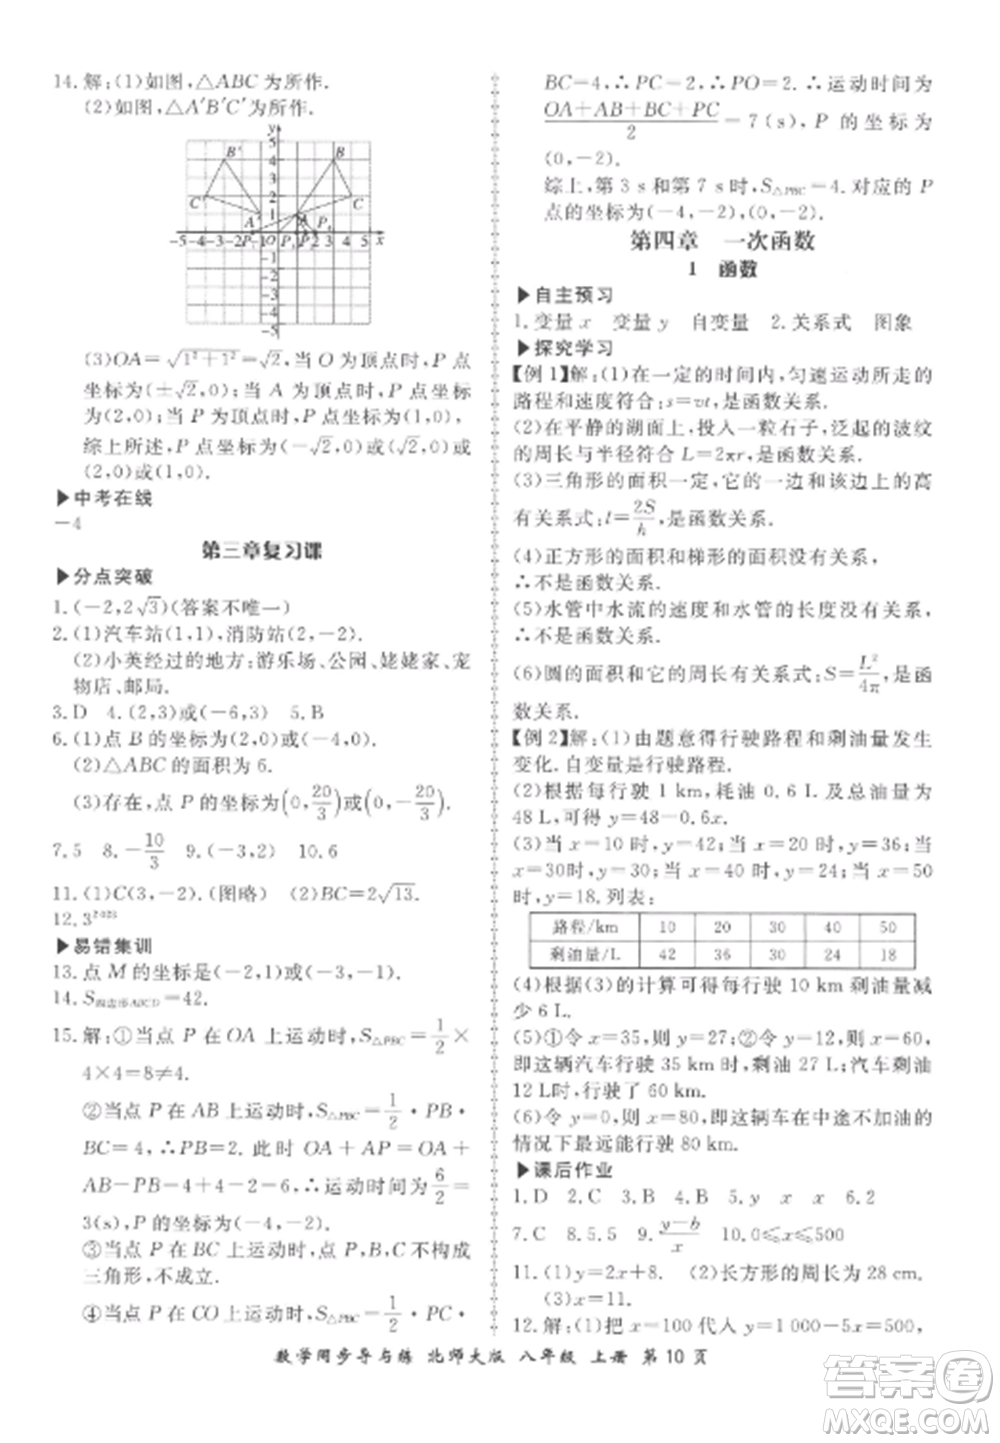 14.解:(1)如图,△ABC为所作.
(2)如图,△A′B′C′为所作.
y
5
4
3
2
1
-5 -4 -3 -2
1 2
4 5
x
-1
-2
-3
-4
-5
B′
B
C′
C
A′
A
(3)OA=√1²+1²=√2,当O为顶点时,P点
坐标为(±√2,0);当A为顶点时,P点坐标
为(2,0);当P为顶点时,P点坐标为(1,0),
综上所述,P点坐标为(-√2,0)或(√2,0)或
(2,0)或(1,0).
▶中考在线
-4
第三章复习课
▶分点突破
1.(-2,2√3)(答案不唯一)
2.(1)汽车站(1,1),消防站(2,-2).
(2)小英经过的地方:游乐场、公园、姥姥家、宠
物店、邮局.
3.D 4.(2,3)或(-6,3) 5.B
6.(1)点B的坐标为(2,0)或(-4,0).
(2)△ABC的面积为6.
(3)存在,点P的坐标为(0,20/3)或(0,-20/3).
7.5 8.-10/3 9.(-3,2) 10.6
11.(1)C(3,-2).(图略) (2)BC=2√13.
12.3²⁰²³
▶易错集训
13.点M的坐标是(-2,-3)或(-3,-1).
14.S四边形ABCD=42.
15.解:①当点P在OA上运动时,S△PBC=1/2×
4×4=8≠4.
②当点P在AB上运动时,S△PBC=1/2·PB·
BC=4,∴PB=2,此时OA+AP=OA+
AB-PB=4+4-2=6,∴运动时间为6/2=
3(s),P的坐标为(-4,-2).
③当点P在BC上运动时,点P、B、C不构成
三角形,不成立.
④当点P在CO上运动时,S△PBC=1/2·PC·
BC=4,∴PC=2,∴PO=2.∴运动时间为
(OA+AB+BC+PC)/2=7(s),P的坐标为
(0,-2).
综上,第3 s和第7 s时,S△PBC=4.对应的P
点的坐标为(-4,-2),(0,-2).
第四章 一次函数
1 函数
▶自主预习
1.变量x 变量y 自变量 2.关系式 图象
▶探究学习
【例1】解:(1)在一定的时间内,匀速运动所走的
路程和速度符合:s=vt,是函数关系.
(2)在平静的湖面上,投入一粒石子,泛起的波纹
的周长与半径符合L=2πr,是函数关系.
(3)三角形的面积一定,它的一边和该边上的高
有关系式:l=2S/h,是函数关系.
(4)正方形的面积和梯形的面积没有关系,
∴不是函数关系.
(5)水管中水流的速度和水管的长度没有关系,
∴不是函数关系.
(6)圆的面积和它的周长有关系式:S=L²/4π,是函
数关系.
【例2】解:(1)由题意得行驶路程和剩油量发生
变化.自变量是行驶路程.
(2)根据每行驶1 km,耗油0.6 L及总油量为
48 L,可得y=48-0.6x.
(3)当x=10时,y=42;当x=20时,y=36;当
x=30时,y=30;当x=40时,y=24;当x=50
时,y=18.列表:
路程/km 10 20 30 40 50
剩油量/L 42 36 30 24 18
(4)根据(3)的计算可得每行驶10 km剩油量减
少6 L.
(5)①令x=35,则y=27;②令y=12,则x=60,
即这辆汽车行驶35 km时,剩油27 L;汽车剩油
12 L时,行驶了60 km.
(6)令y=0,则x=80,即这辆车在中途不加油的
情况下最远能行驶80 km.
▶课后作业
1.D 2.C 3.B 4.B 5.2500 x x 6.2
7.C 8.5.5 9.(y-b)/x 10.0≤x≤500
11.(1)y=2x+8. (2)长方形的周长为28 cm.
(3)x=11.
12.解:(1)把x=100代入y=1000-5x=500,
数学同步导与练 北师大版 八年级 上册 第10页
答案圈
MXQE.COM